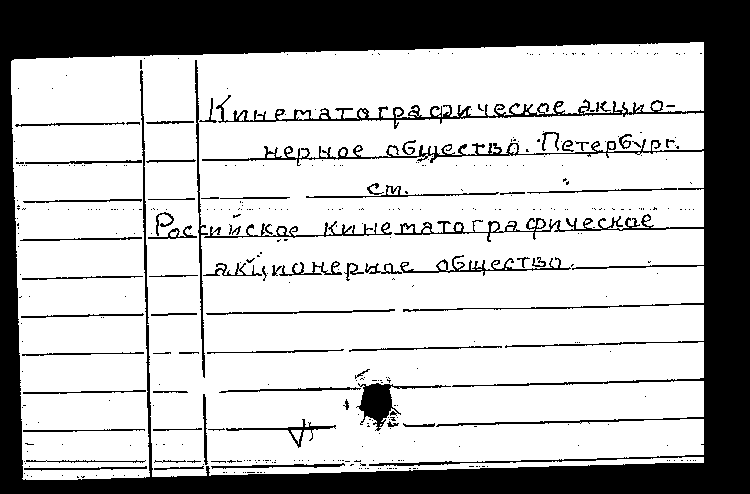 Кинематографическое акцио-
нерное общество. Петербург.
см.
Российское кинематографическое
акционерное общество.